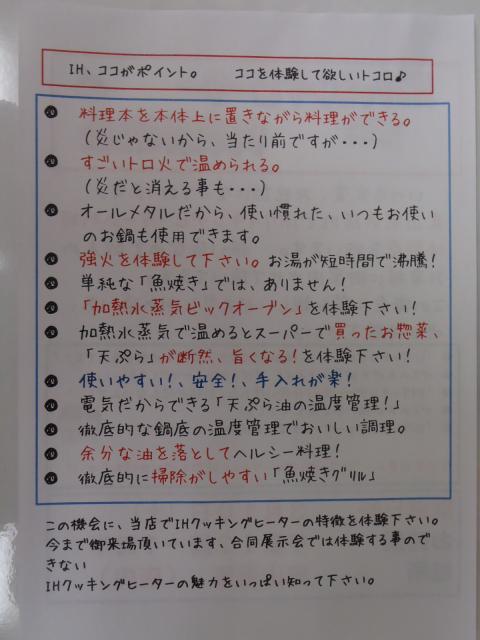 IH、ココがポイント。　ココを体験して欲しいトコロ♪
料理本を本体上に置きながら料理ができる。
（炎じゃないから、当たり前ですが・・・）
すごいトロ火で温められる。
（炎だと消える事も・・・）
オールメタルだから、使い慣れた、いつもお使い
のお鍋も使用できます。
強火を体験して下さい。お湯が短時間で沸騰！
単純な「魚焼き」では、ありません！
「加熱水蒸気ビックオーブン」を体験下さい！
加熱水蒸気で温めるとスーパーで買ったお惣菜、
「天ぷら」が断然、旨くなる！を体験下さい！
使いやすい！、安全！、手入れが楽！
電気だからできる「天ぷら油の温度管理！」
徹底的な鍋底の温度管理でおいしい調理。
余分な油を落としてヘルシー料理！
徹底的に掃除がしやすい「魚焼きグリル」
この機会に、当店でIHクッキングヒーターの特徴を体験下さい。
今まで御来場頂いています、合同展示会では体験する事ので
きない
IHクッキングヒーターの魅力をいっぱい知って下さい。